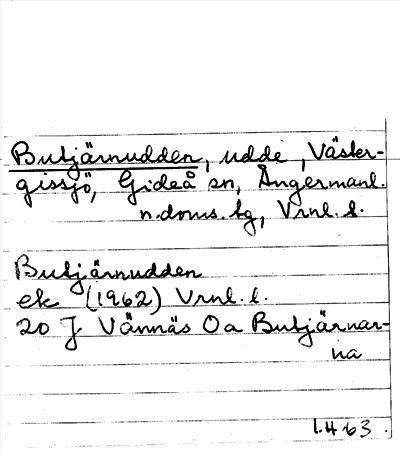 Butjärnudden, udde, Väster-
gissjö, Gideå sn, Ångermanl.
n. doms. tg, Vrnl. l.
Butjärnudden
ek (1962) Vrnl. l.
20 J Vännäs Oa Butjärnar-
na
1.4 63.